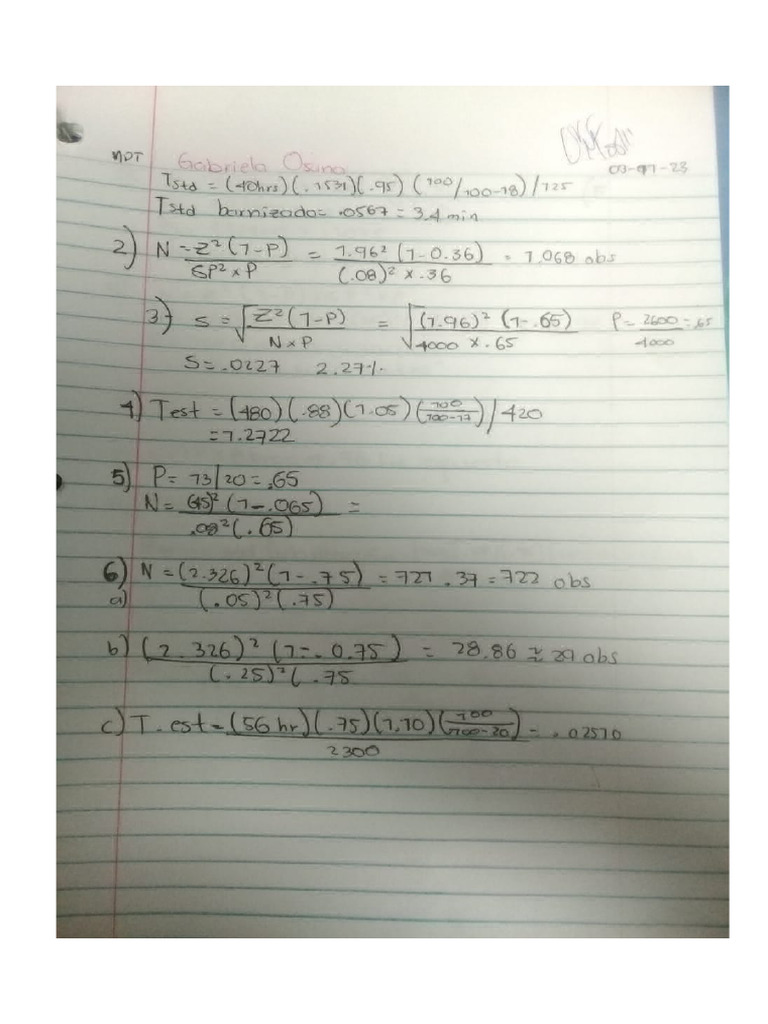 MDT Gabriela Osuna 03-01-23
Tstd = (40hrs)(.1531)(.95)(100/100-18)/125
Tstd barnizado = .0567 = 3.4 min
2) N = Z²(1-P) / SP² x P = 1.96²(1-0.36) / (.08)² x .36 = 1,068 obs
3) S = √Z²(1-P) / N x P = √(1.96)²(1-.65) / 4000 x .65 P = 2600/4000 = .65
S = .0227 2.27%
4) Test = (480)(.88)(1.05)(100/100-17)/420
= 1.2722
5) P = 13/20 = .65
N = (645)²(1-.065) / .08²(.65) =
6) N = (2.326)²(1-.75) / (.05)²(.75) = 721.37 = 722 obs
a)
b) (2.326)²(1-.0.75) / (.25)²(.75 = 28.86 ≈ 29 obs
c) T.est = (56 hr)(.75)(1.10)(100/100-20) / 2300 = .02510